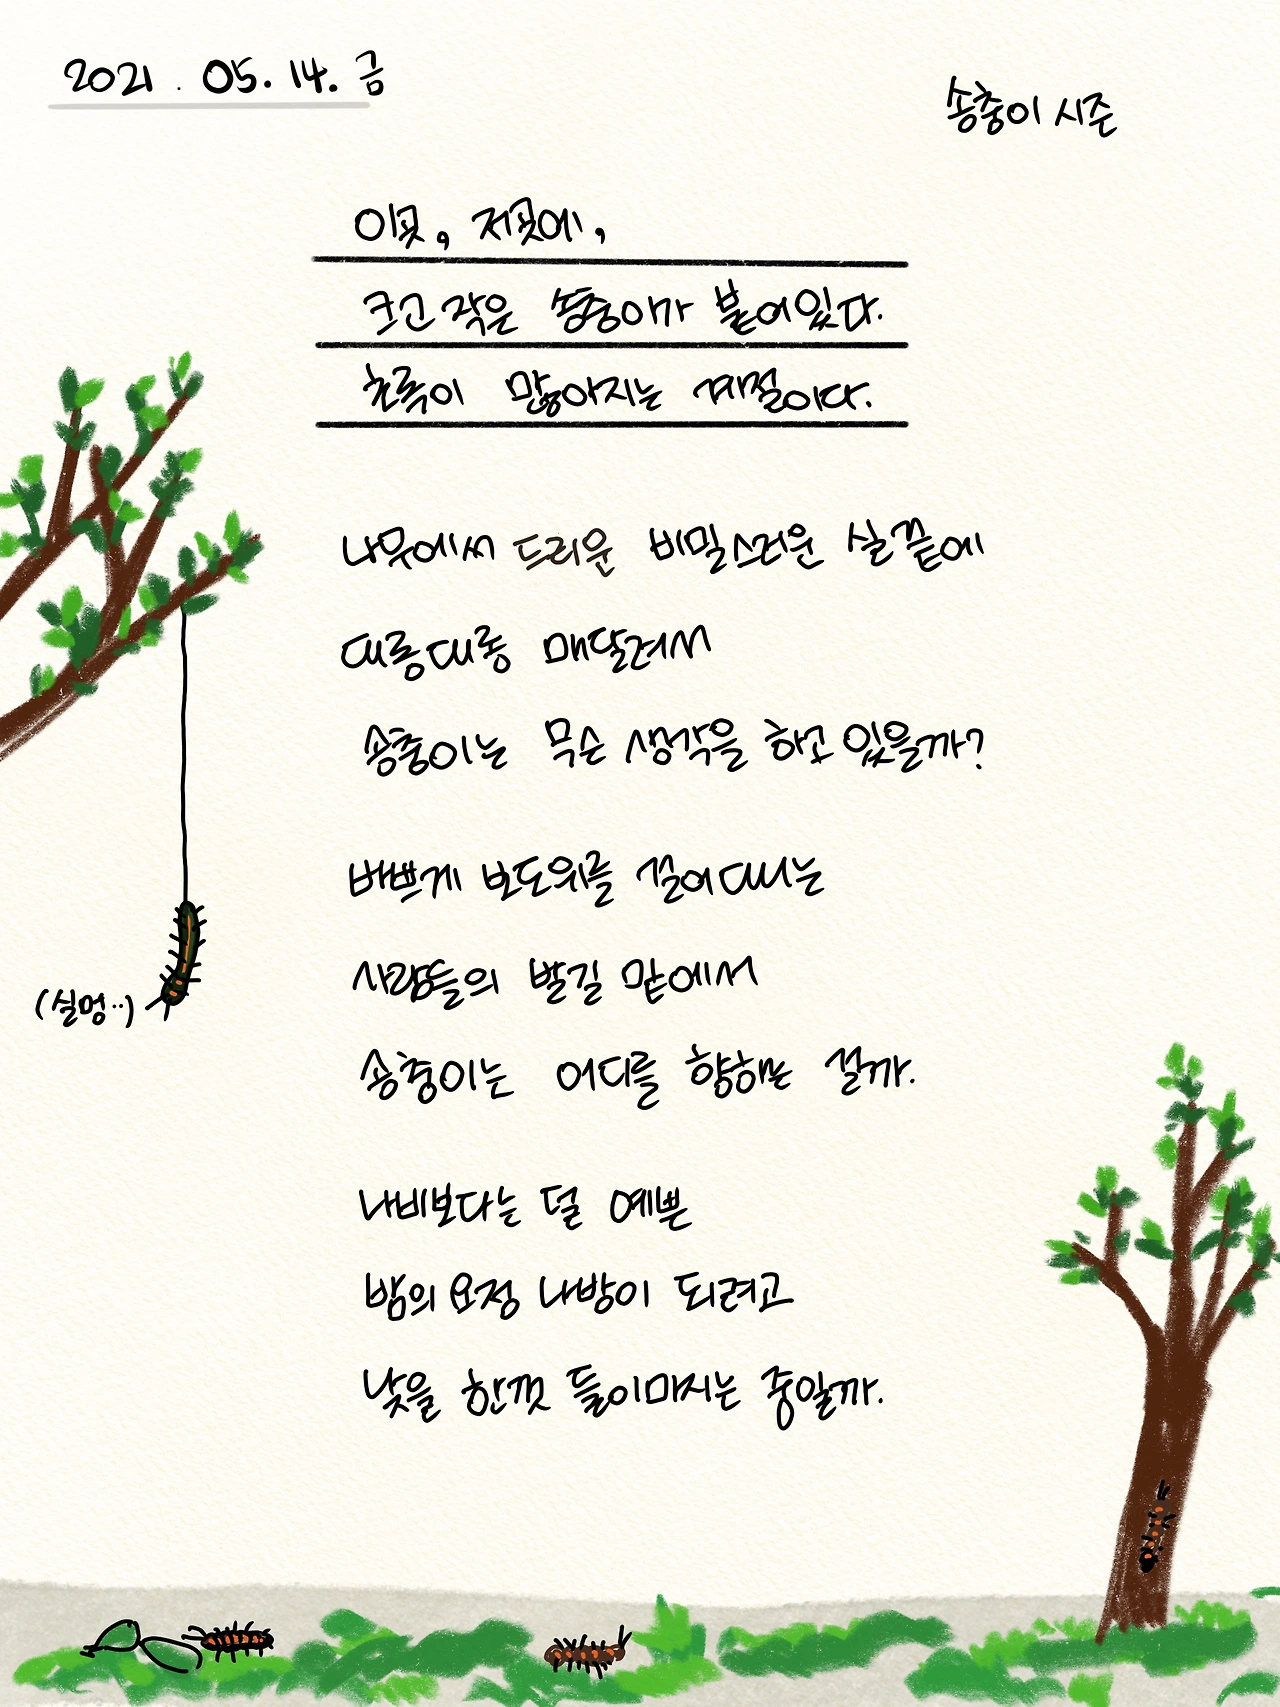 2021. 05. 14. 금
송충이 시즌
이곳, 저곳에,
크고 작은 송충이가 붙어있다.
초록이 많아지는 계절이다.
나무에서 드리운 비밀스러운 실 끝에
대롱대롱 매달려서
송충이는 무슨 생각을 하고 있을까?
바쁘게 보도위를 걸어대는
사람들의 발길 맡에서
(실멍..)
송충이는 어디를 향하는 걸까.
나비보다는 덜 예쁜
밤의 요정 나방이 되려고
낮을 한껏 들이마시는 중일까.